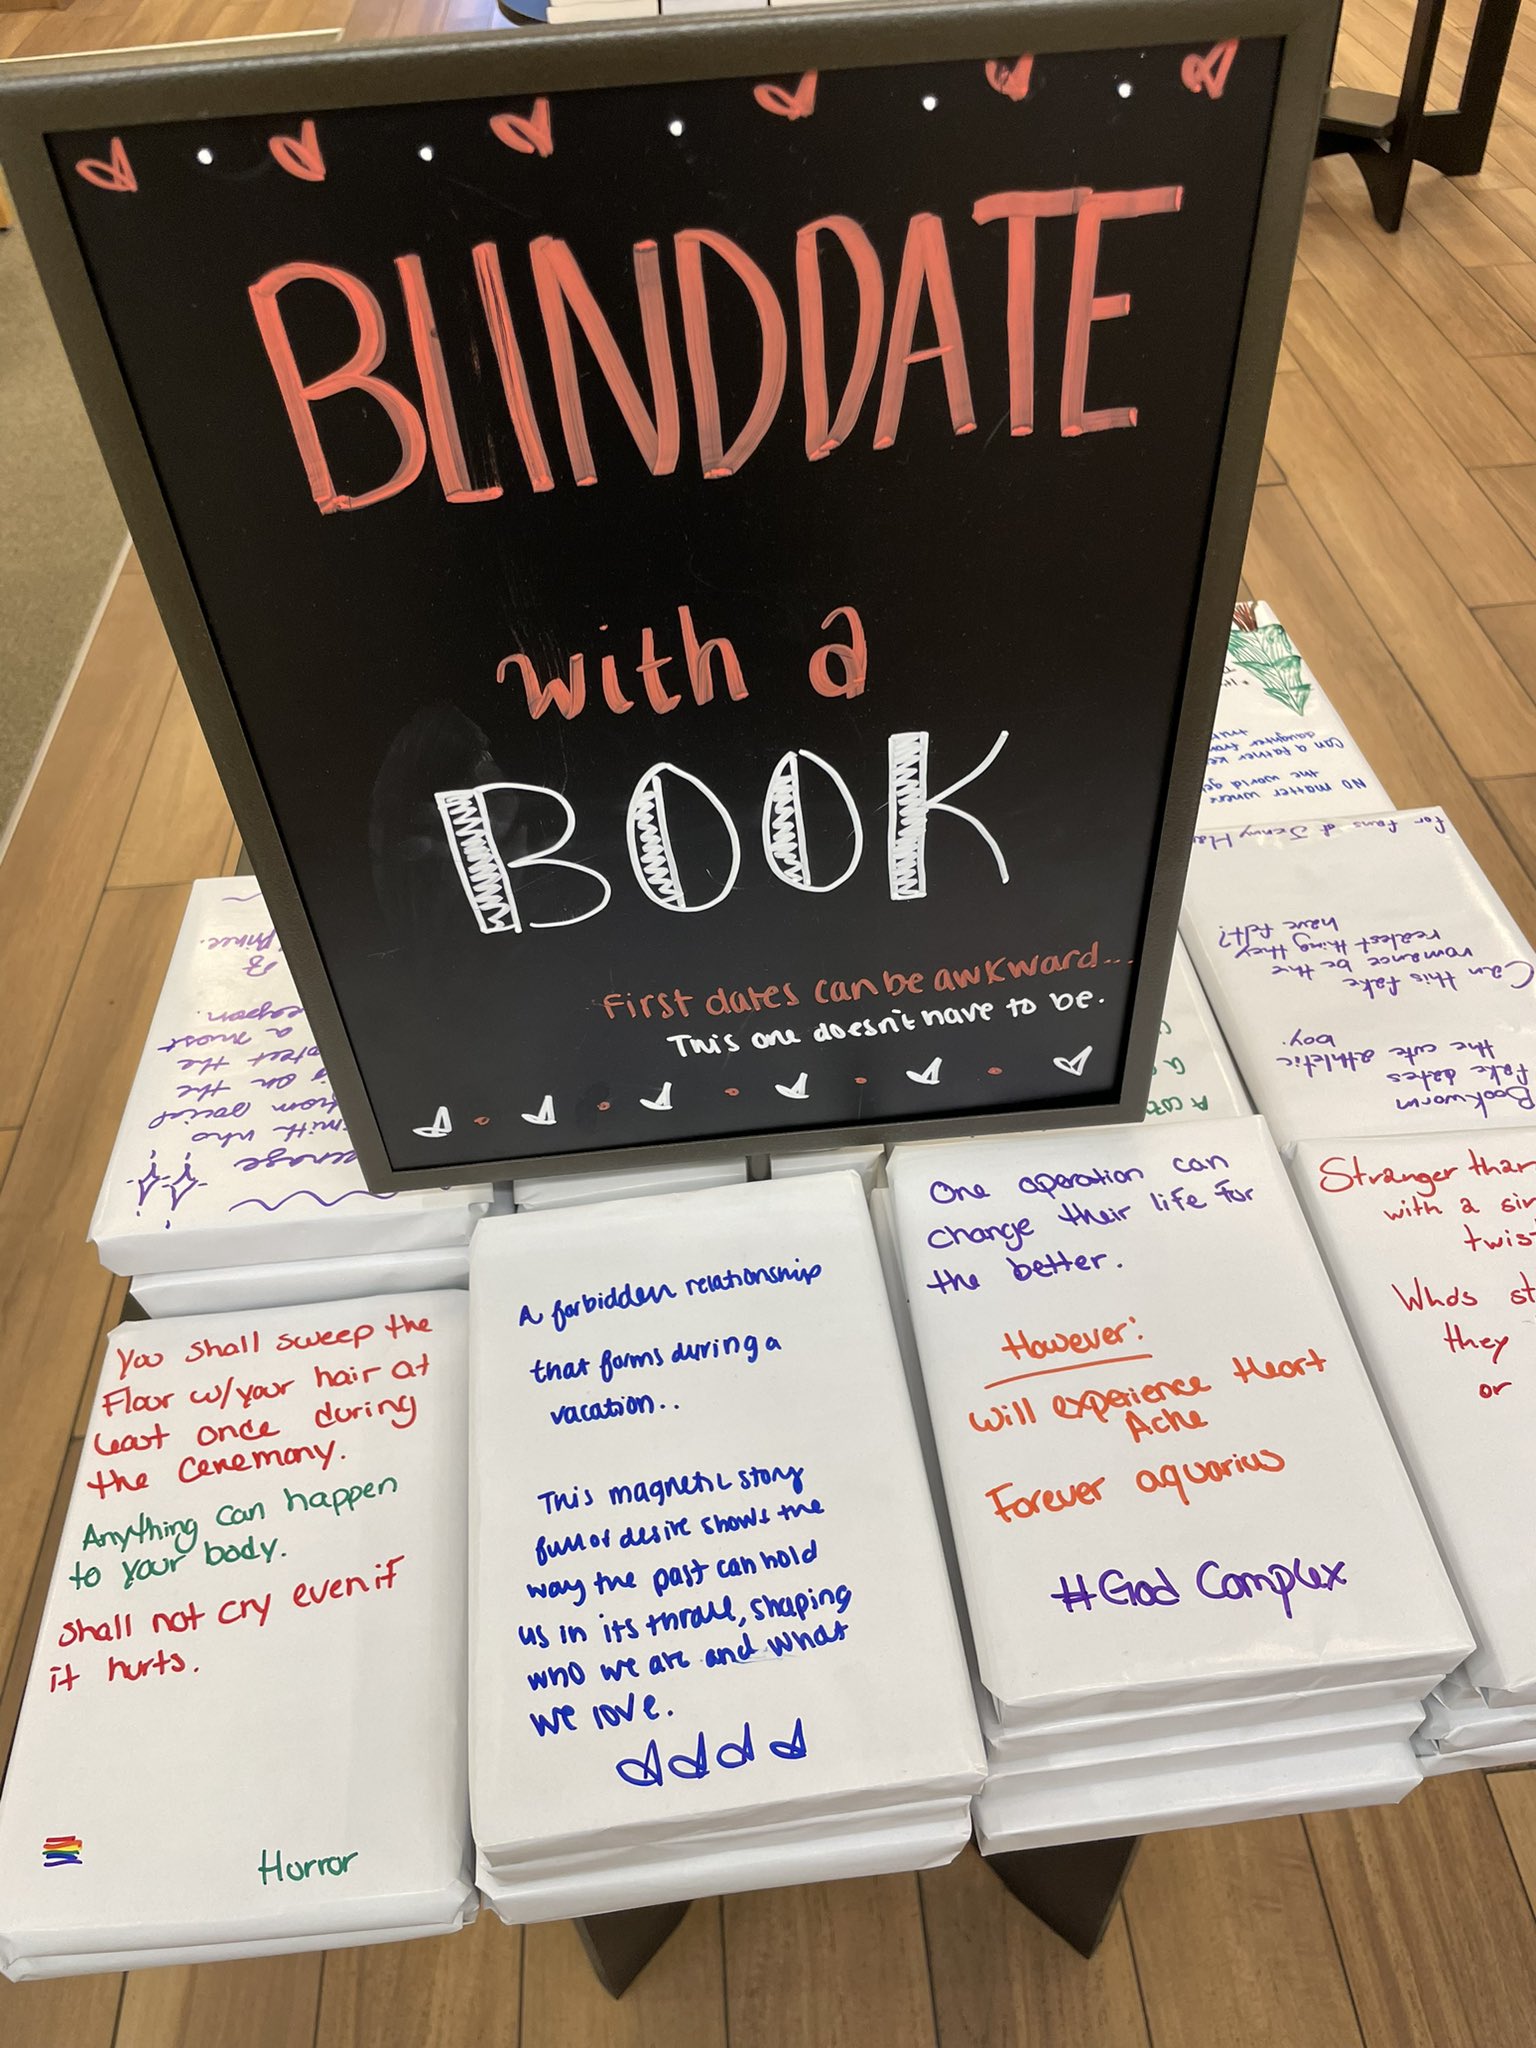 BLIND DATE
with a
BOOK
First dates can be awkward...
This one doesn't have to be.
Prince.
a most
protect the
on the
from social
smith who
NO matter where
the world
Can a father
daughter from
for fans of Jenny
Can this fake
romance be the
realest thing they
have felt?
Bookworm
fake dates
the cute athletic
boy.
You shall sweep the
Floor w/your hair at
least once during
the ceremony.
Anything can happen
to your body.
shall not cry even if
it hurts.
Horror
A forbidden relationship
that forms during a
vacation..
This magnetic story
full of desire shows the
way the past can hold
us in its thrall, shaping
who we are and what
we love.
One operation can
change their life for
the better.
However:
will experience Heart
Ache
Forever aquarius
#God Complex
Stranger than
with a
twist
Who's
they
or